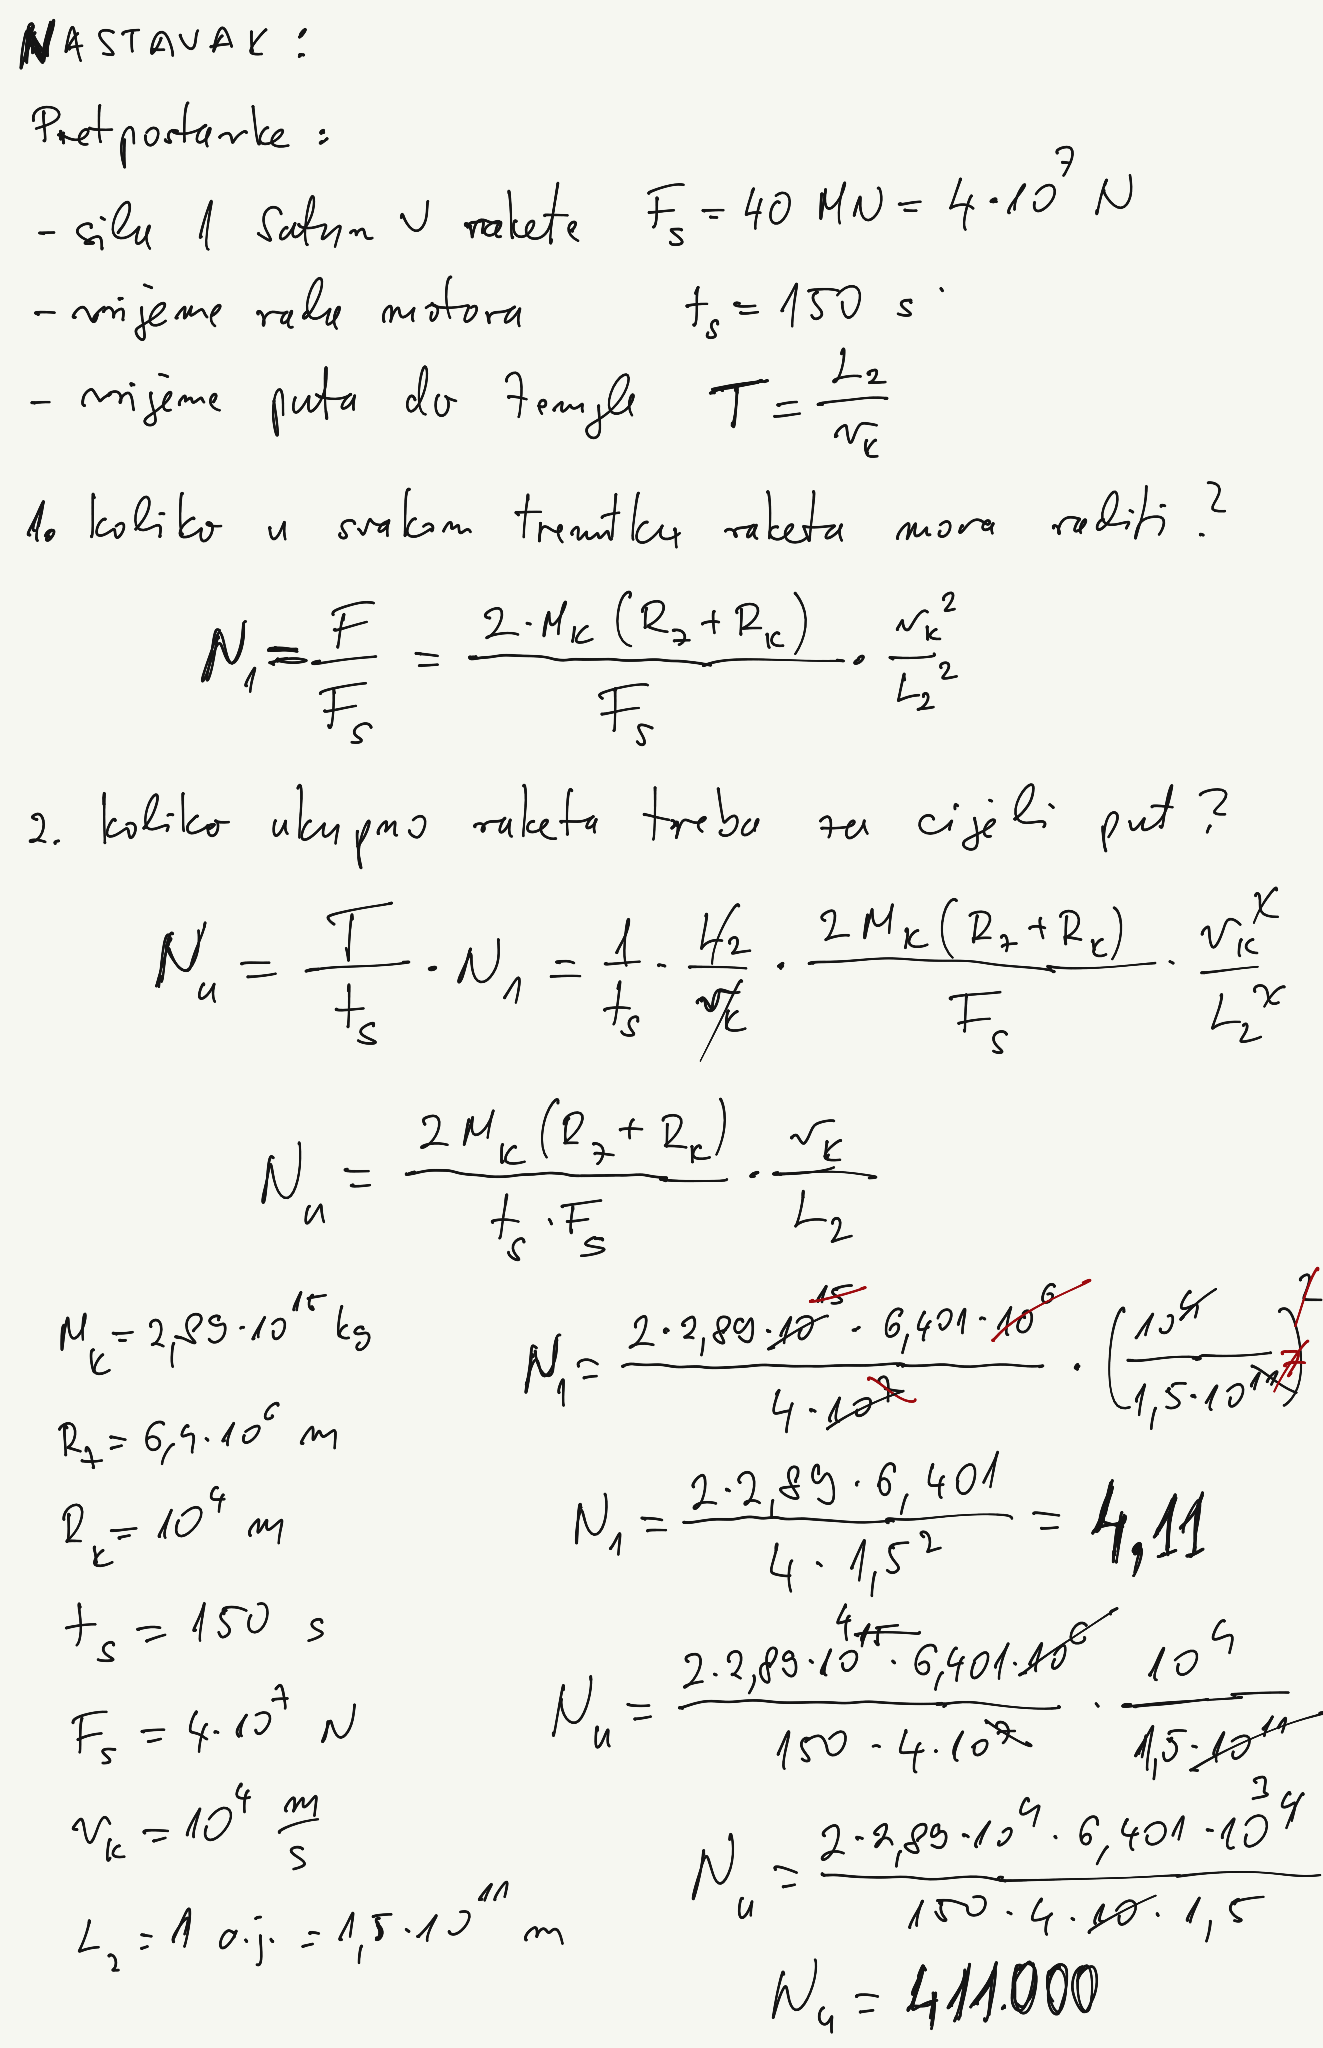 NASTAVAK :
Pretpostavke :
- sila 1 Saturn V rakete F_s = 40 MN = 4·10^7 N
- vrijeme rada motora t_s = 150 s
- vrijeme puta do Zemlje T = L_2 / v_K
1. koliko u svakom trenutku raketa mora raditi ?
N_1 = F / F_s = 2·M_K (R_Z + R_K) / F_s · v_K^2 / L_2^2
2. koliko ukupno raketa treba za cijeli put ?
N_u = T / t_s · N_1 = 1 / t_s · L_2 / v_K · 2 M_K (R_Z + R_K) / F_s · v_K^2 / L_2^2
N_u = 2 M_K (R_Z + R_K) / t_s · F_s · v_K / L_2
M_K = 2,89·10^15 kg
R_Z = 6,4·10^6 m
R_K = 10^4 m
t_s = 150 s
F_s = 4·10^7 N
v_K = 10^4 m/s
L_2 = 1 a.j. = 1,5·10^11 m
N_1 = 2·2,89·10^15 · 6,401·10^6 / 4·10^7 · (10^4 / 1,5·10^11 7)^2
N_1 = 2·2,89·6,401 / 4·1,5^2 = 4,11
N_u = 2·2,89·10^15 4 · 6,401·10^6 / 150·4·10^7 · 10^4 / 1,5·10^11
N_u = 2·2,89·10^4 · 6,401·10^4 3 / 150·4·10·1,5
N_u = 411.000